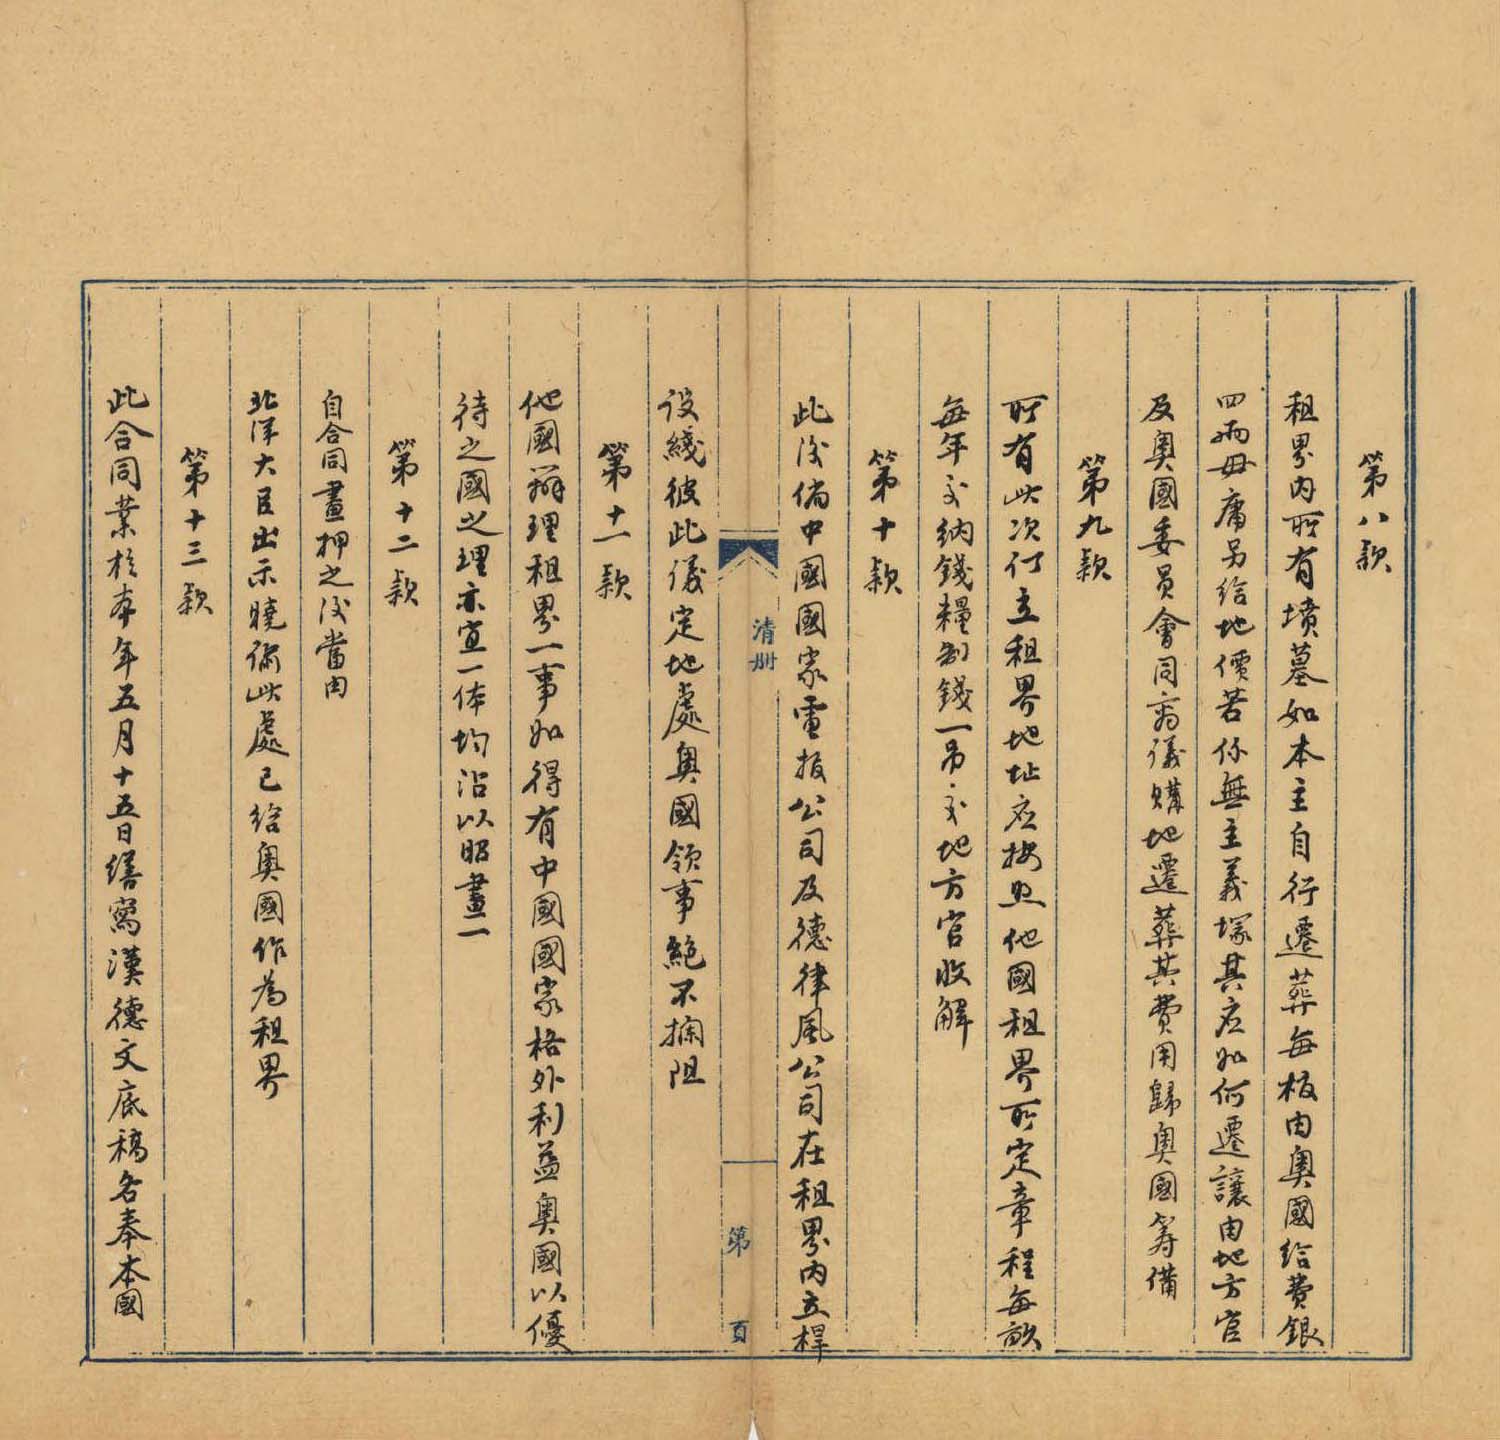 第八款
租界内所有墳墓如本主自行遷葬每柩由奥國給費銀
四兩毋庸另給地價若係無主義塚其应如何遷讓由地方官
及奥國委員會同商議購地遷葬其費用歸奥國筹備
第九款
所有此次订立租界地址应按照他國租界所定章程每畝
每年交納錢糧制錢一吊交地方官收解
第十款
此後倘中國國家電报公司及德律風公司在租界内立桿
设綫彼此議定地處奥國領事絶不攔阻
第十一款
他國辦理租界一事如得有中國國家格外利益奥國以優
待之國之理亦宜一体均沾以昭畫一
第十二款
自合同畫押之後當由
北洋大臣出示曉諭此處已给奥國作為租界
第十三款
此合同業於本年五月十五日繕寫漢德文底稿各奉本國
清册
第 頁